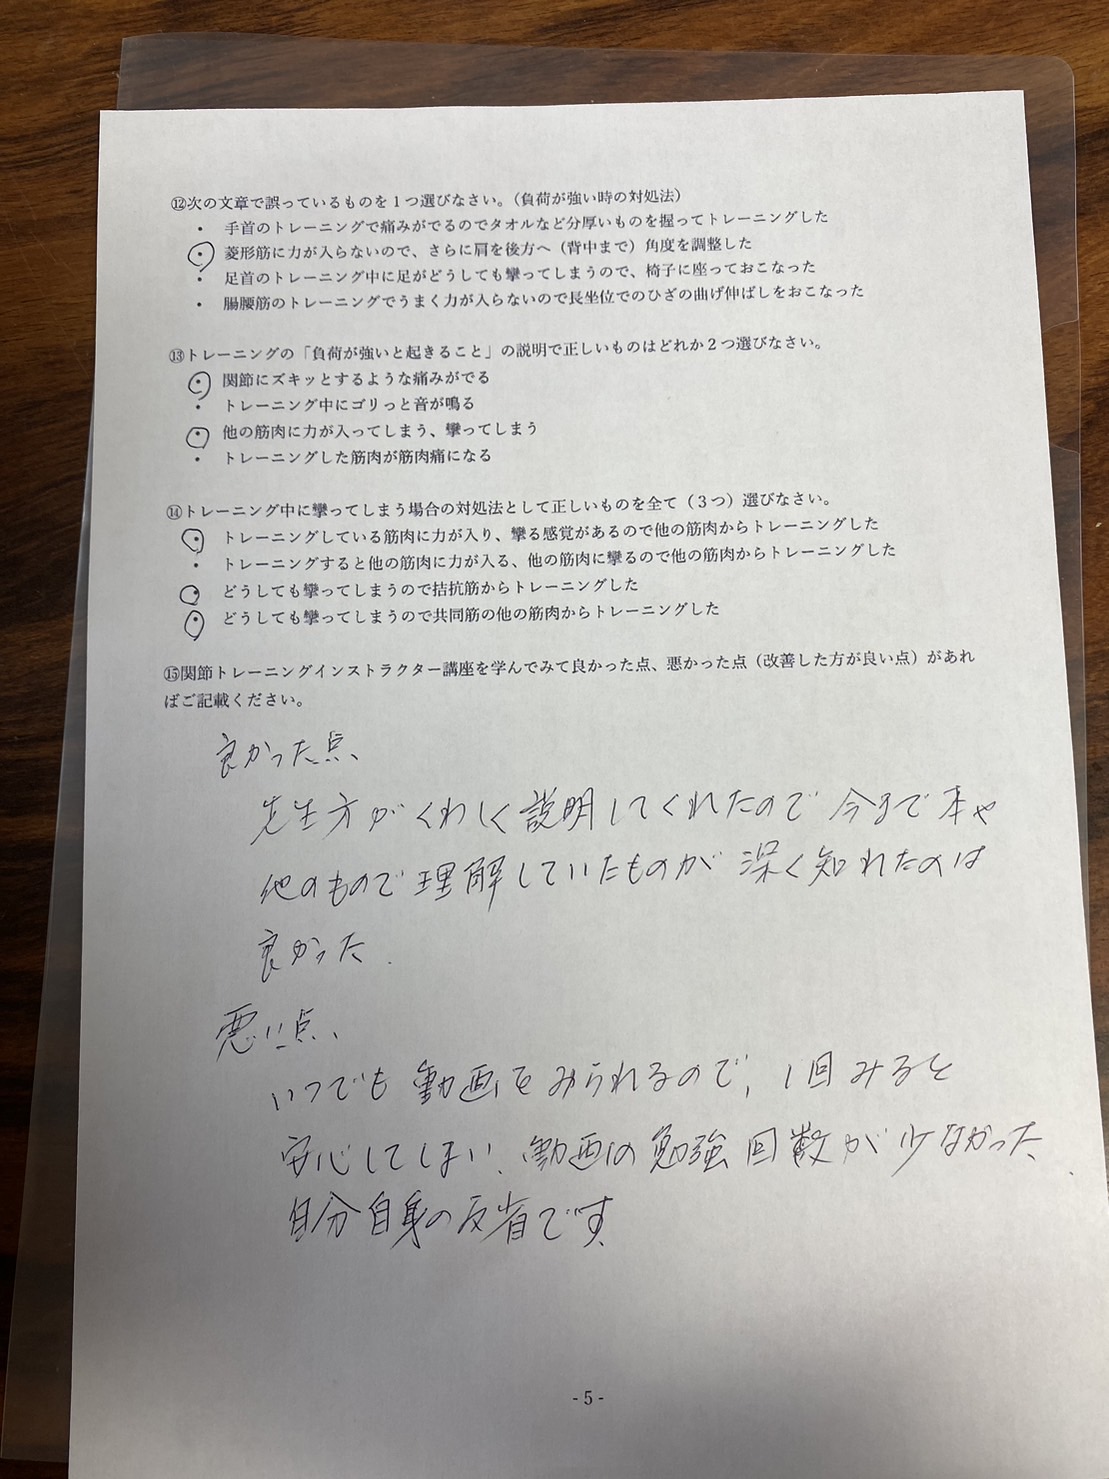 ⑫次の文章で誤っているものを１つ選びなさい。（負荷が強い時の対処法）
・ 手首のトレーニングで痛みがでるのでタオルなど分厚いものを握ってトレーニングした
・ 菱形筋に力が入らないので、さらに肩を後方へ（背中まで）角度を調整した
・ 足首のトレーニング中に足がどうしても攣ってしまうので、椅子に座っておこなった
・ 腸腰筋のトレーニングでうまく力が入らないので長坐位でのひざの曲げ伸ばしをおこなった
⑬トレーニングの「負荷が強いと起きること」の説明で正しいものはどれか２つ選びなさい。
・ 関節にズキッとするような痛みがでる
・ トレーニング中にゴリっと音が鳴る
・ 他の筋肉に力が入ってしまう、攣ってしまう
・ トレーニングした筋肉が筋肉痛になる
⑭トレーニング中に攣ってしまう場合の対処法として正しいものを全て（３つ）選びなさい。
・ トレーニングしている筋肉に力が入り、攣る感覚があるので他の筋肉からトレーニングした
・ トレーニングすると他の筋肉に力が入る、他の筋肉に攣るので他の筋肉からトレーニングした
・ どうしても攣ってしまうので拮抗筋からトレーニングした
・ どうしても攣ってしまうので共同筋の他の筋肉からトレーニングした
⑮関節トレーニングインストラクター講座を学んでみて良かった点、悪かった点（改善した方が良い点）があれ
ばご記載ください。
良かった点、
先生方がくわしく説明してくれたので今まで本や
他のもので理解していたものが深く知れたのは
良かった.
悪い点、
いつでも動画をみられるので、1回みると
安心してしまい、動画の勉強回数が少なかった.
自分自身の反省です、
- 5 -